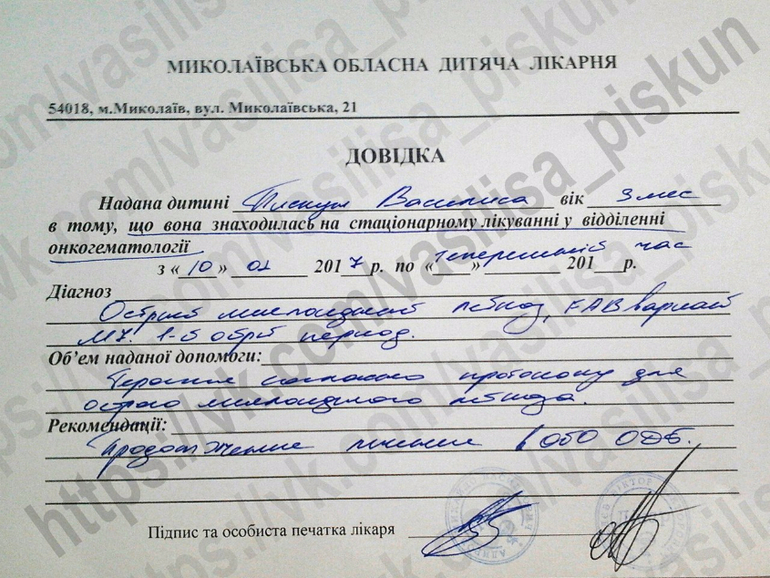 МИКОЛАЇВСЬКА ОБЛАСНА ДИТЯЧА ЛІКАРНЯ
54018, м.Миколаїв, вул. Миколаївська, 21
ДОВІДКА
Надана дитині Пискун Василиса вік 3 мес
в тому, що вона знаходилась на стаціонарному лікуванні у відділенні
онкогематології
з « 10 » 01 2017 р. по « » теперешній час 201 р.
Діагноз
Острый миелоидный лейкоз, FAB вариант
М7. 1-й острый период.
Об'ем наданої допомоги:
Терапия согласно протоколу для
острого миелоидного лейкоза.
Рекомендації:
Продолжение лечения в ОГО ОДБ.
Підпис та особиста печатка лікаря
https://vk.com/vasilisa_piskun